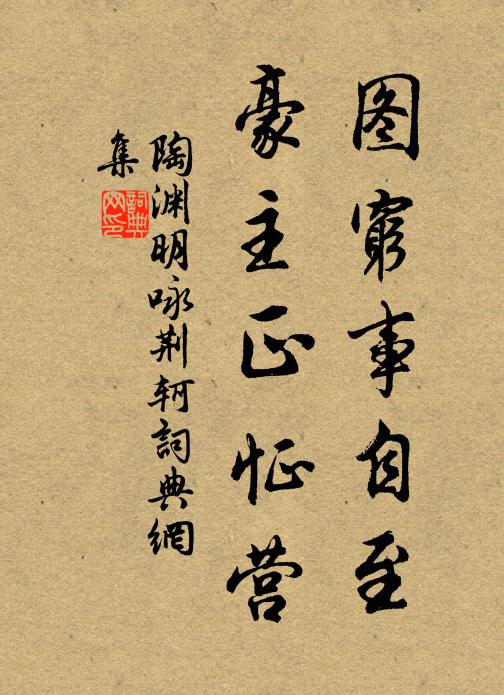 图窮事自至
豪主正怔营
陶渊明咏荆轲詞典網
集
詞典网印